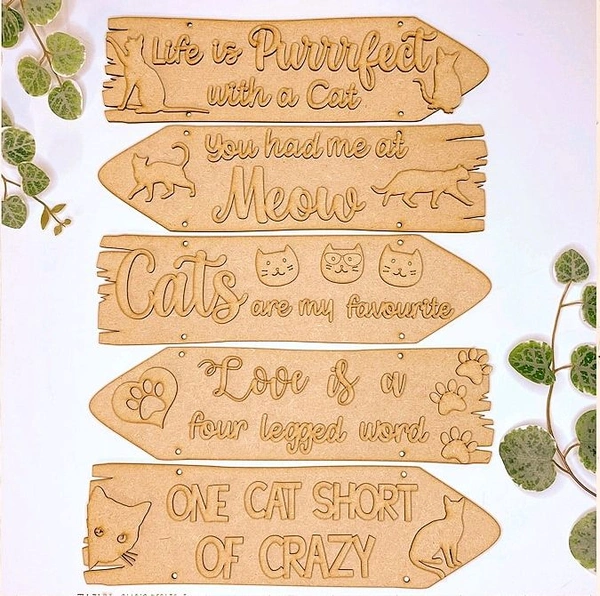 Life is Purrrfect
with a Cat
You had me at
Meow
Cats
are my favourite
Love is a
four legged word
ONE CAT SHORT
OF CRAZY